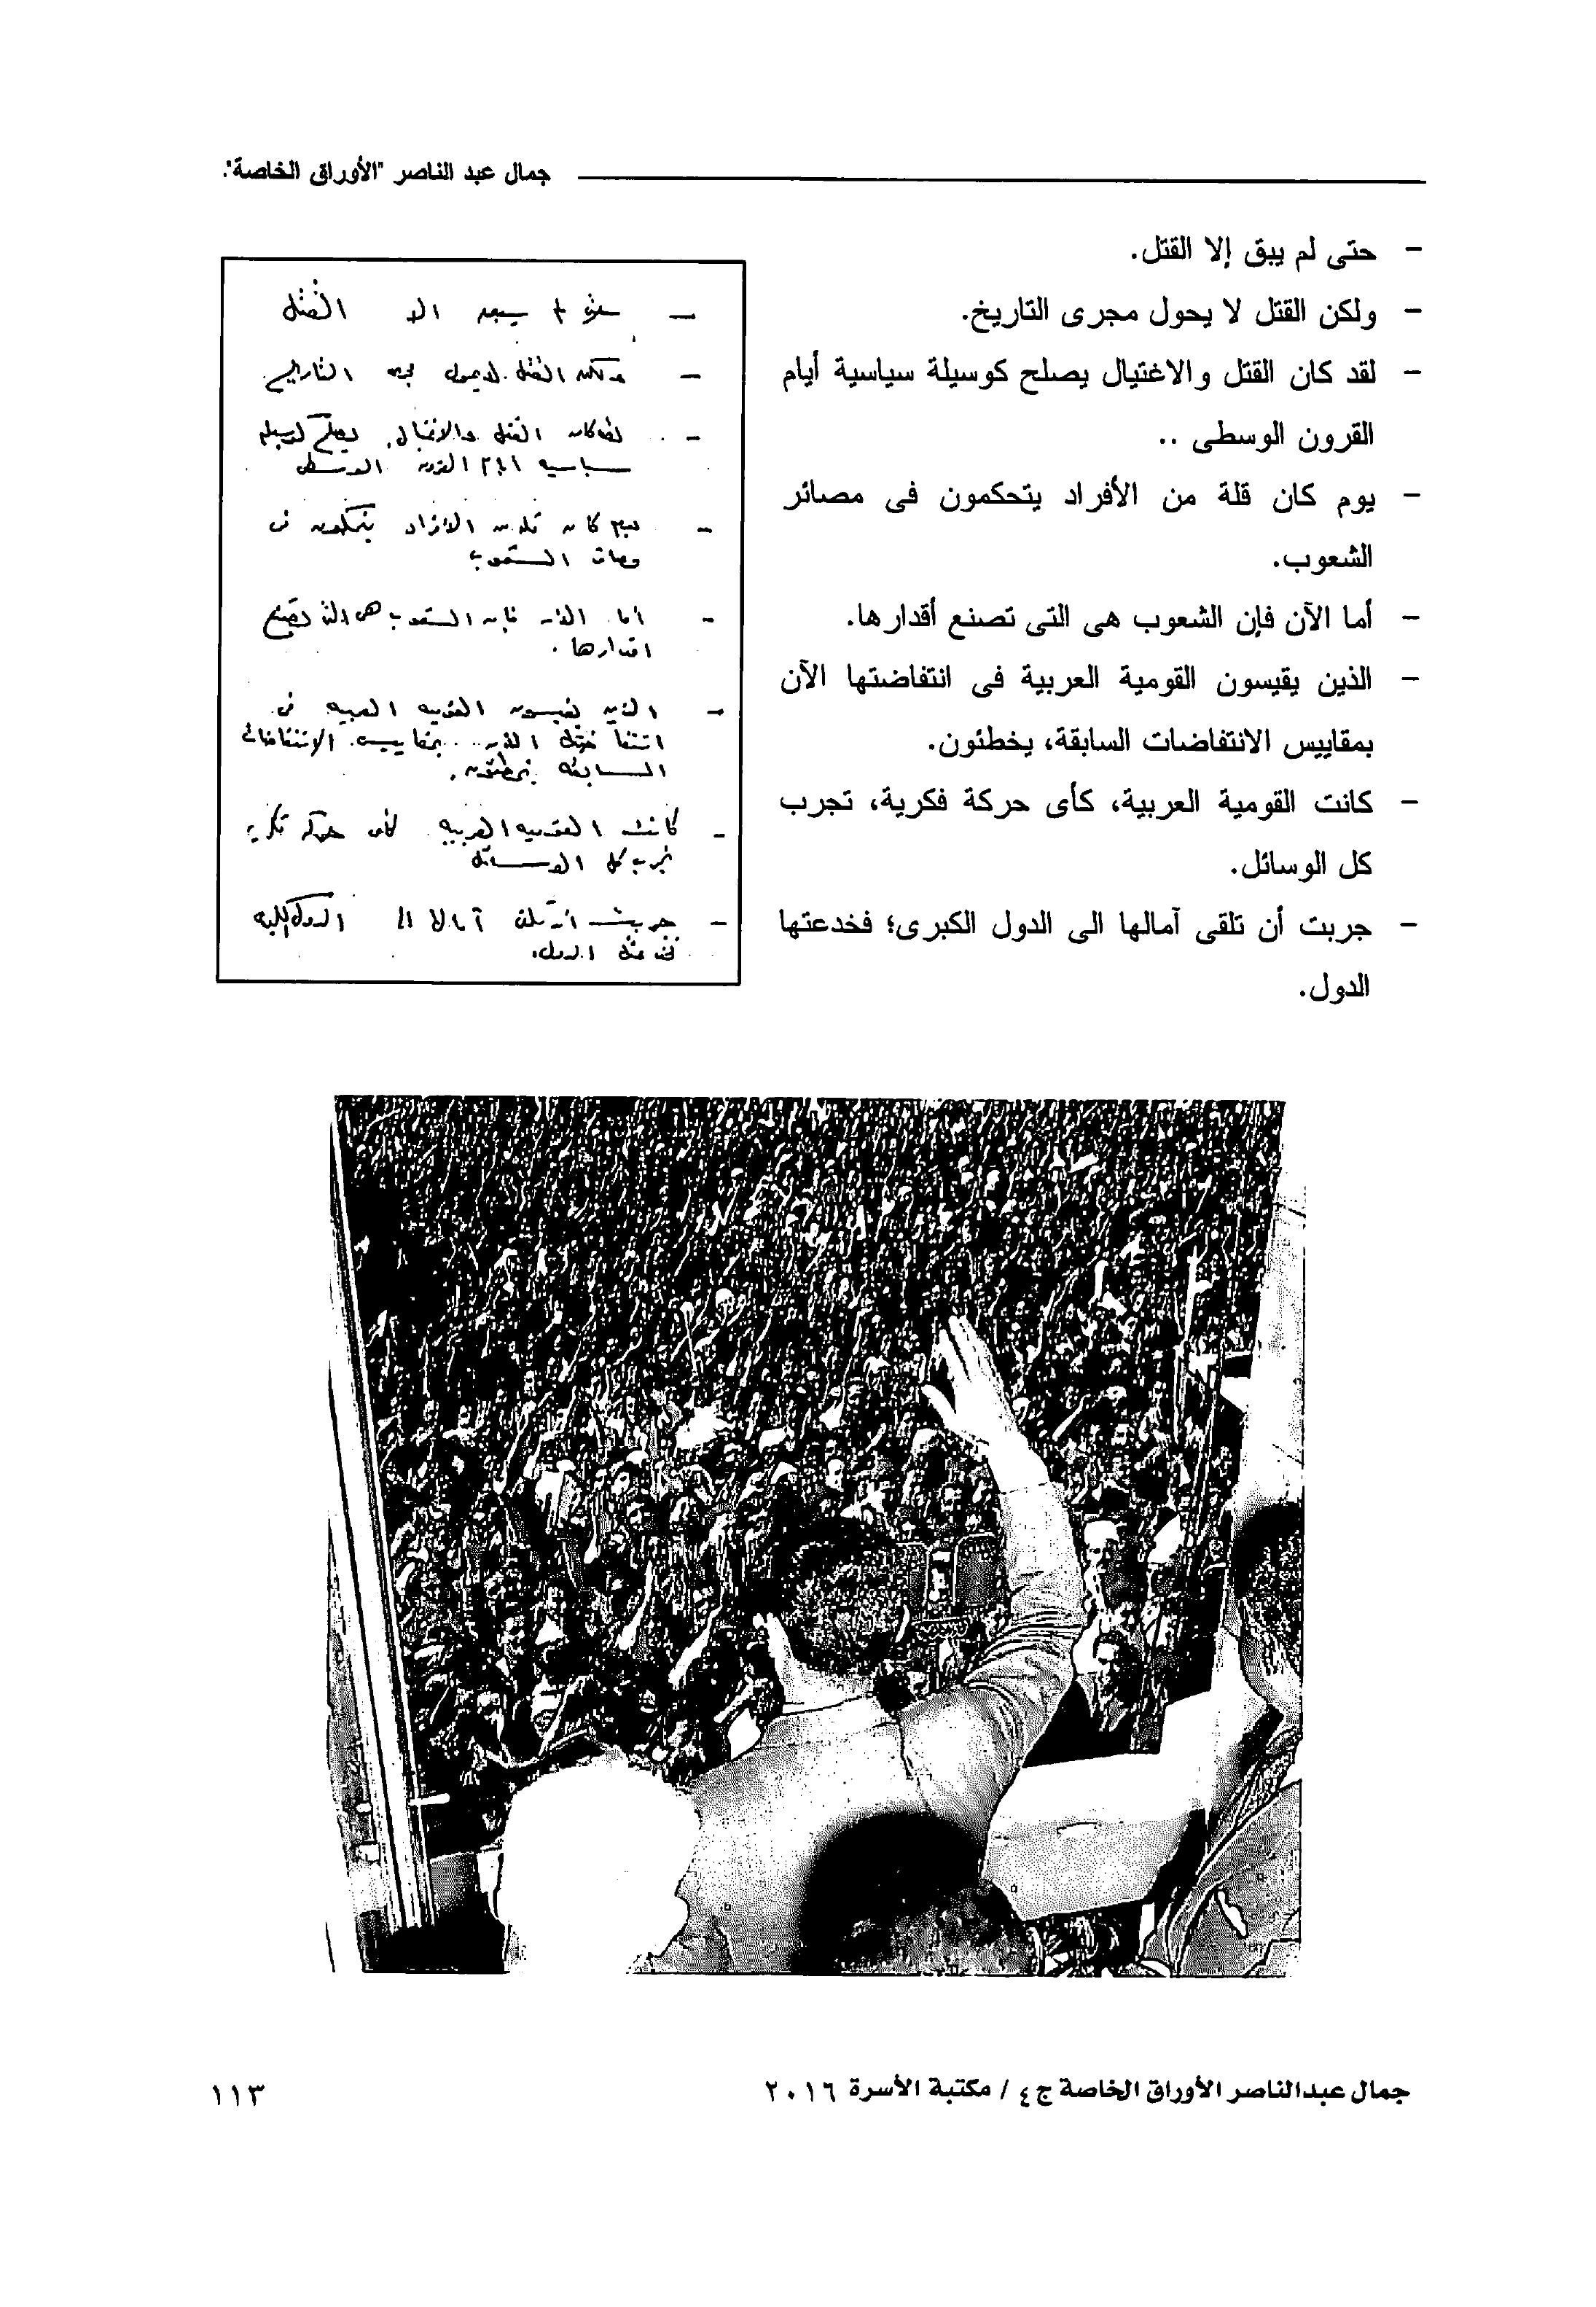 جمال عبد الناصر "الأوراق الخاصة".
- حتى لم يبق إلا القتل.
- ولكن القتل لا يحول مجرى التاريخ.
- لقد كان القتل والاغتيال يصلح كوسيلة سياسية أيام
القرون الوسطى ..
- يوم كان قلة من الأفراد يتحكمون فى مصائر
الشعوب.
- أما الآن فإن الشعوب هى التى تصنع أقدارها.
- الذين يقيسون القومية العربية فى انتفاضتها الآن
بمقاييس الانتفاضات السابقة، يخطئون.
- كانت القومية العربية، كأى حركة فكرية، تجرب
كل الوسائل.
- جربت أن تلقى آمالها الى الدول الكبرى؛ فخدعتها
الدول.
- حتى لم يبق الا القتل
- ولكن القتل لا يحول مجرى التاريخ
- لقد كان القتل والاغتيال يصلح كوسيلة
سياسية ايام القرون الوسطى
- يوم كان قلة من الافراد يتحكمون فى
الشعوب
- أما الآن فإن الشعوب هى التى تصنع
اقدارها .
- الذين يقيسون القومية العربية فى
انتفاضتها الآن بمقاييس الانتفاضات
السابقة يخطئون .
- كانت القومية العربية كأى حركة فكرية
تجرب كل الوسائل
- جربت أن تلقى آمالها الى الدول الكبرى
فخدعتها الدول .
جمال عبدالناصر الأوراق الخاصة ج٤ / مكتبة الأسرة ٢٠١٦
١١٣